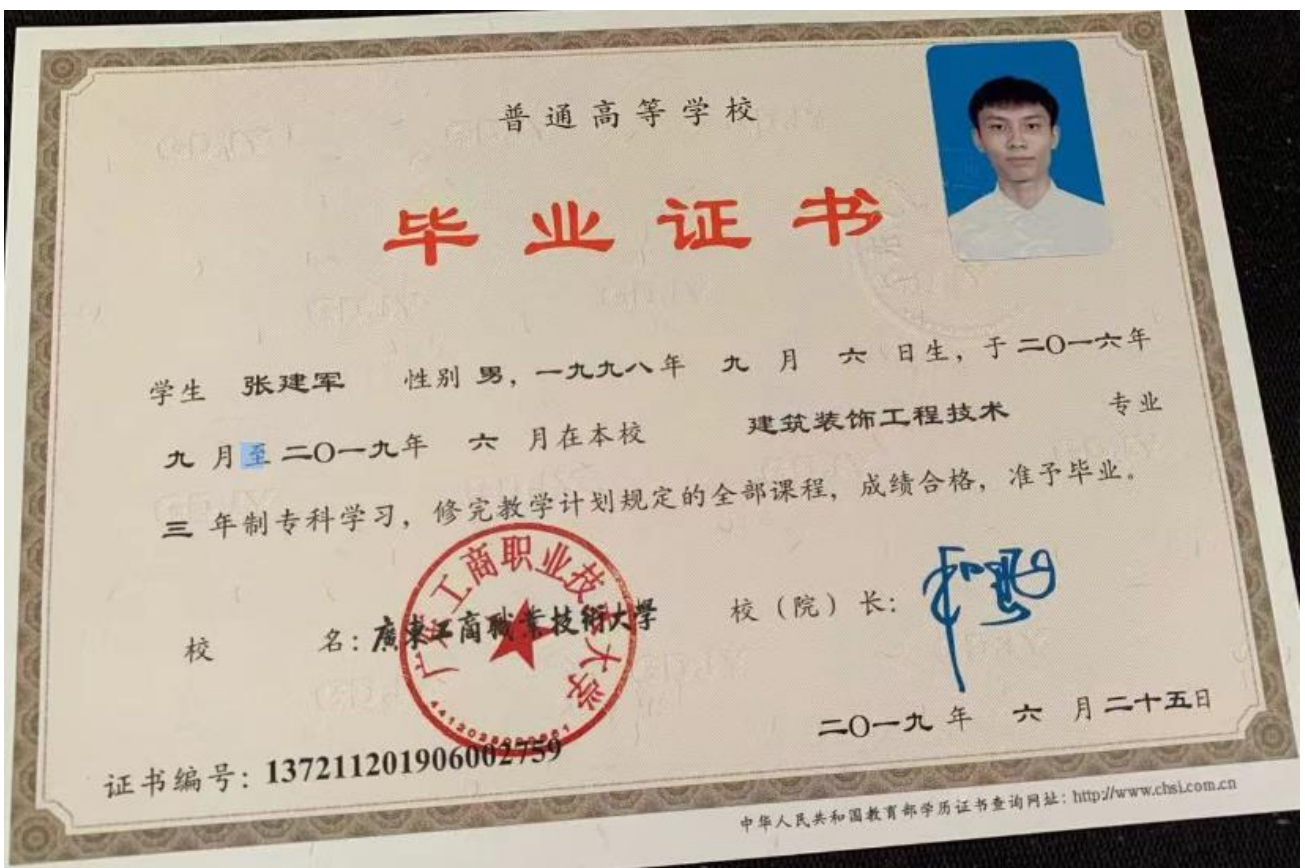 普通高等学校
毕业证书
学生 张建军 性别 男，一九九八年 九 月 六 日生，于二〇一六年
九 月至二〇一九年 六 月在本校 建筑装饰工程技术 专业
三 年制专科学习，修完教学计划规定的全部课程，成绩合格，准予毕业。
校 名：廣東工商職業技術大學 校（院）长：
广东工商职业技术大学
二〇一九 年 六 月二十五日
证书编号：137211201906002759
中华人民共和国教育部学历证书查询网址：http://www.chsi.com.cn